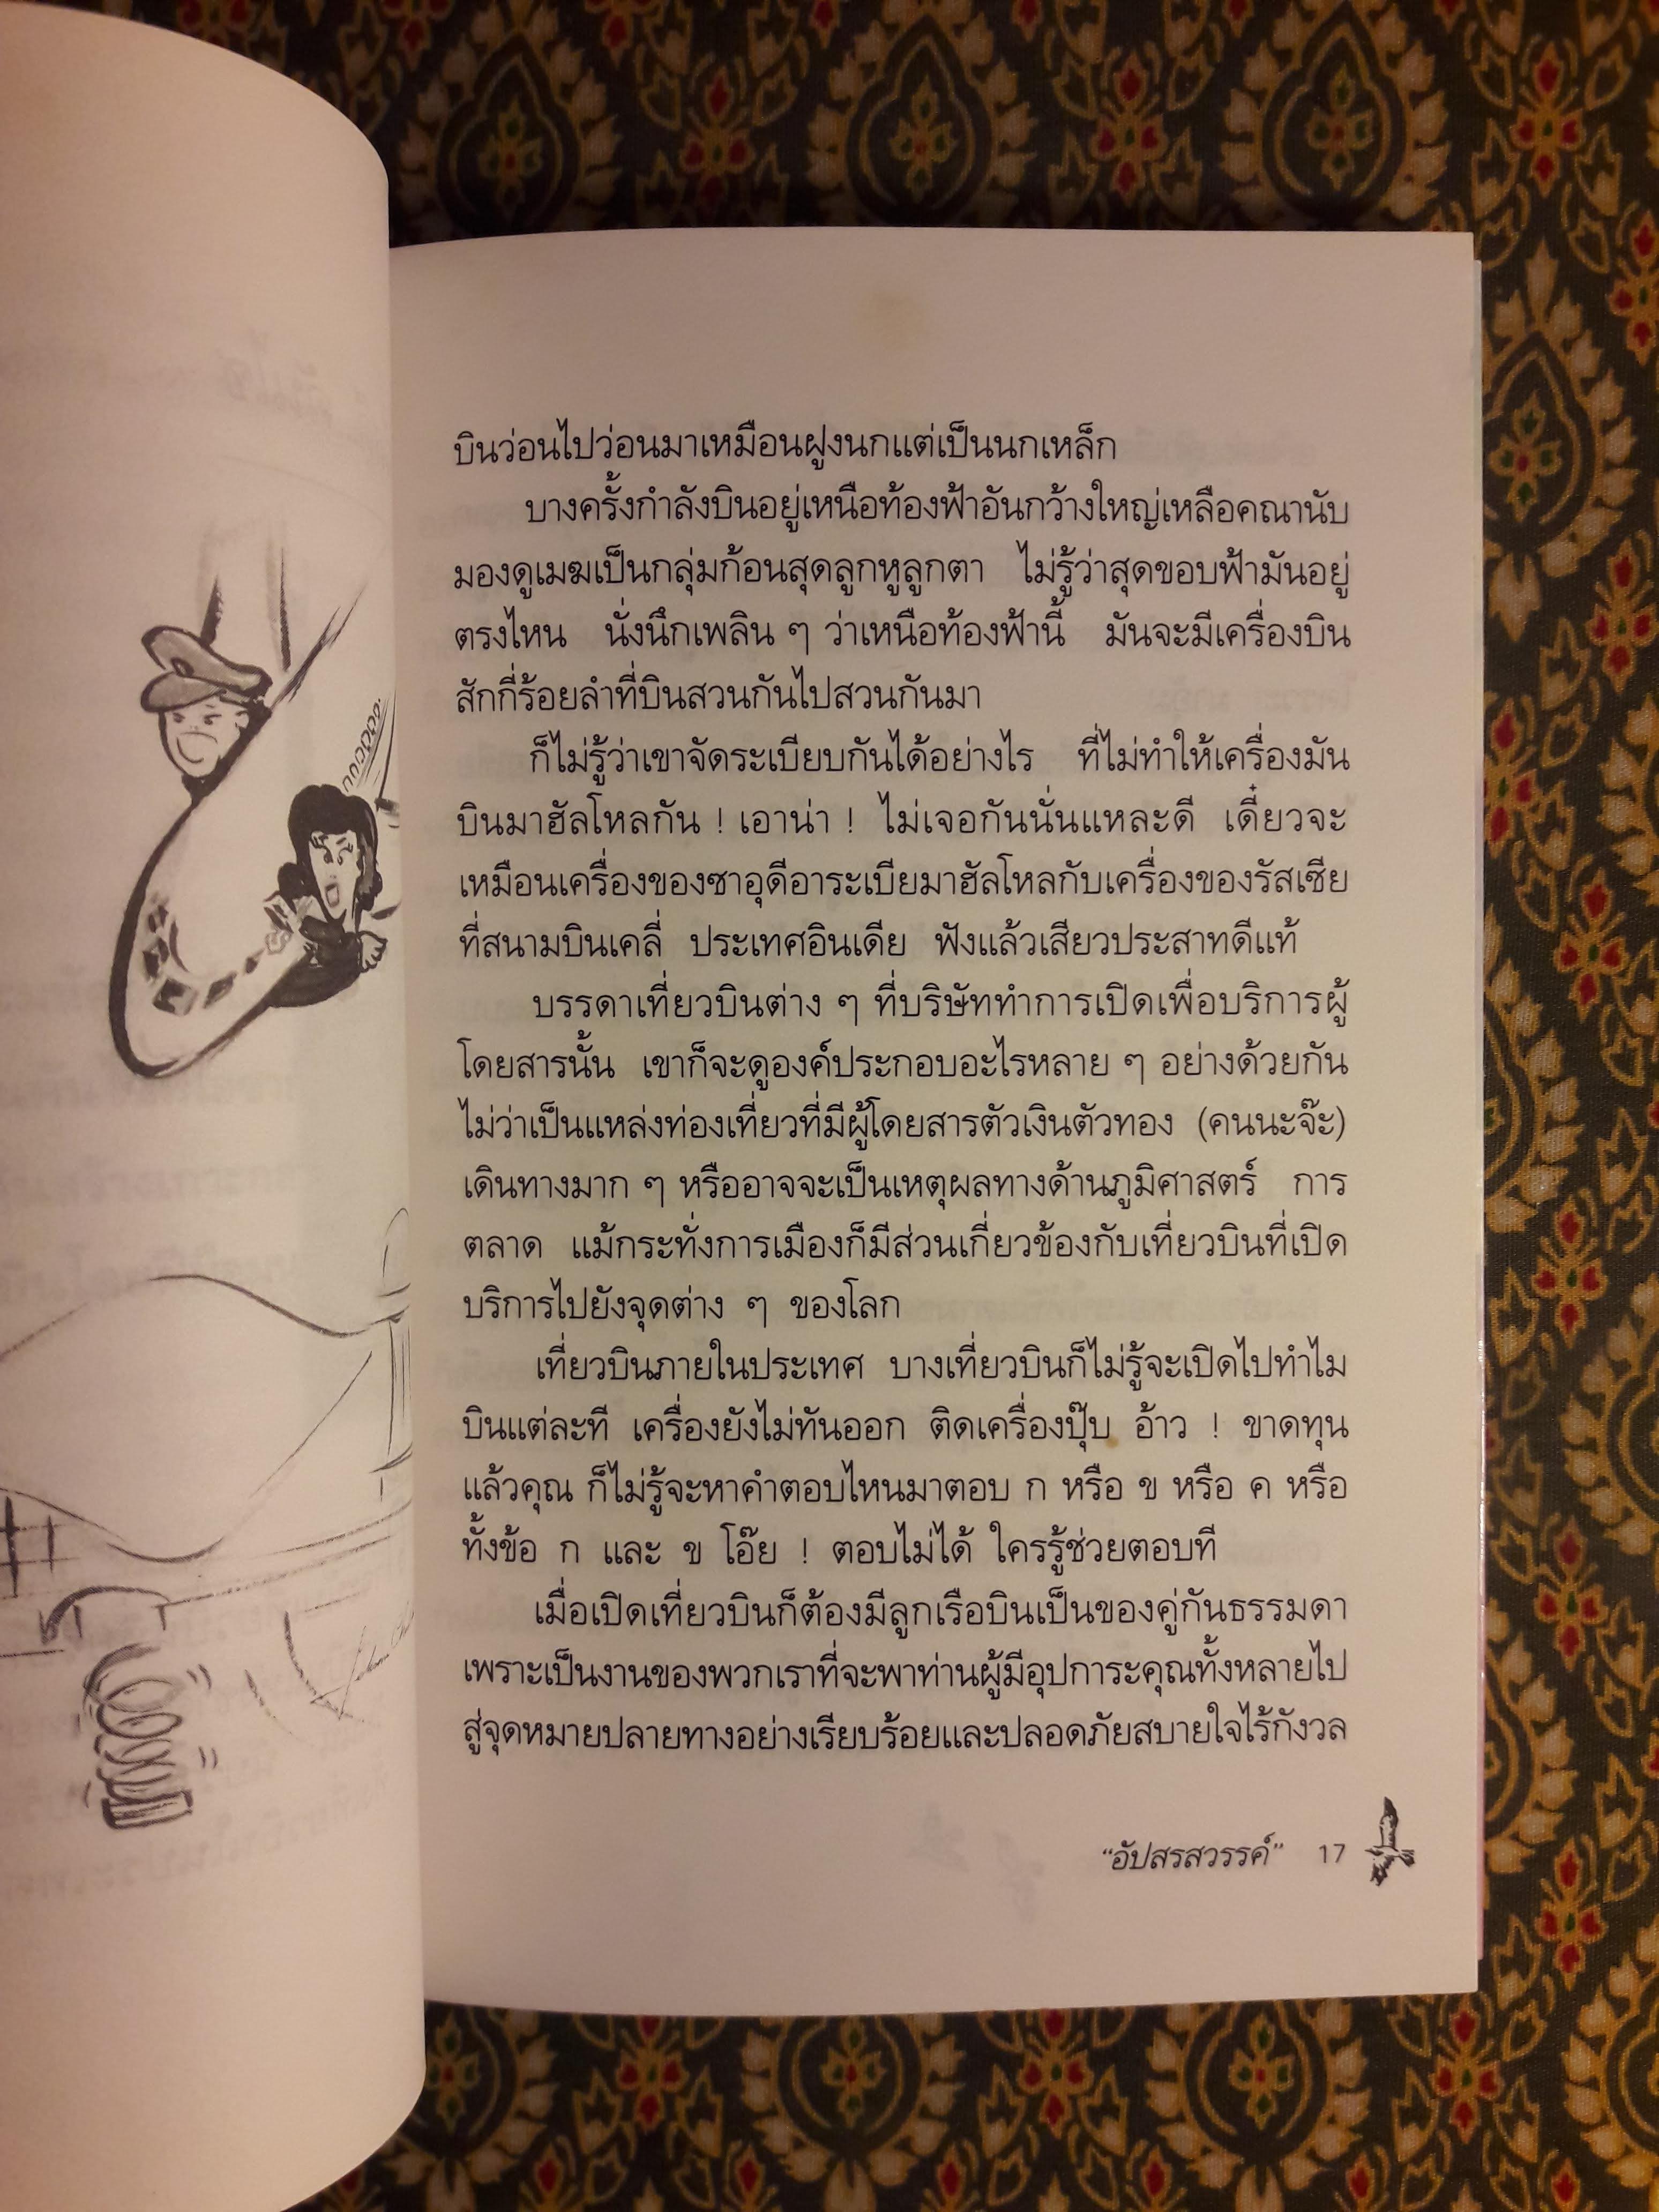 บินว่อนไปว่อนมาเหมือนฝูงนกแต่เป็นนกเหล็ก
บางครั้งกำลังบินอยู่เหนือท้องฟ้าอันกว้างใหญ่เหลือคณานับ
มองดูเมฆเป็นกลุ่มก้อนสุดลูกหูลูกตา ไม่รู้ว่าสุดขอบฟ้ามันอยู่
ตรงไหน นั่งนึกเพลิน ๆ ว่าเหนือท้องฟ้านี้ มันจะมีเครื่องบิน
สักกี่ร้อยลำที่บินสวนกันไปสวนกันมา
ก็ไม่รู้ว่าเขาจัดระเบียบกันได้อย่างไร ที่ไม่ทำให้เครื่องมัน
บินมาฮัลโหลกัน ! เอาน่า ! ไม่เจอกันนั่นแหละดี เดี๋ยวจะ
เหมือนเครื่องของซาอุดีอาระเบียมาฮัลโหลกับเครื่องของรัสเซีย
ที่สนามบินเคลี่ ประเทศอินเดีย ฟังแล้วเสียวประสาทดีแท้
บรรดาเที่ยวบินต่าง ๆ ที่บริษัททำการเปิดเพื่อบริการผู้
โดยสารนั้น เขาก็จะดูองค์ประกอบอะไรหลาย ๆ อย่างด้วยกัน
ไม่ว่าเป็นแหล่งท่องเที่ยวที่มีผู้โดยสารตัวเงินตัวทอง (คนนะจ๊ะ)
เดินทางมาก ๆ หรืออาจจะเป็นเหตุผลทางด้านภูมิศาสตร์ การ
ตลาด แม้กระทั่งการเมืองก็มีส่วนเกี่ยวข้องกับเที่ยวบินที่เปิด
บริการไปยังจุดต่าง ๆ ของโลก
เที่ยวบินภายในประเทศ บางเที่ยวบินก็ไม่รู้จะเปิดไปทำไม
บินแต่ละที เครื่องยังไม่ทันออก ติดเครื่องปุ๊บ อ้าว ! ขาดทุน
แล้วคุณ ก็ไม่รู้จะหาคำตอบไหนมาตอบ ก หรือ ข หรือ ค หรือ
ทั้งข้อ ก และ ข โอ๊ย ! ตอบไม่ได้ ใครรู้ช่วยตอบที
เมื่อเปิดเที่ยวบินก็ต้องมีลูกเรือบินเป็นของคู่กันธรรมดา
เพราะเป็นงานของพวกเราที่จะพาท่านผู้มีอุปการะคุณทั้งหลายไป
สู่จุดหมายปลายทางอย่างเรียบร้อยและปลอดภัยสบายใจไร้กังวล
“อัปสรสวรรค์” 17